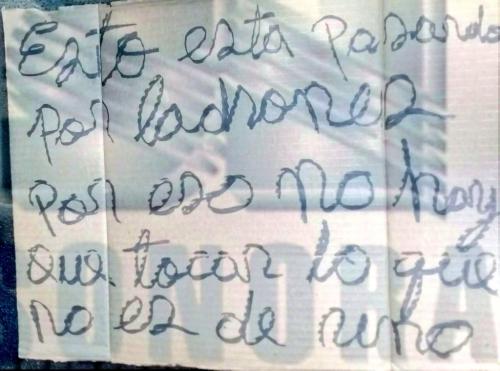 Esto esta pasando
por ladrones
por eso no hay
que tocar lo que
no es de uno